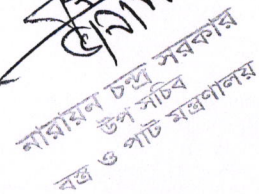 নারায়ন চন্দ্র সরকার
উপ সচিব
বস্ত্র ও পাট মন্ত্রণালয়